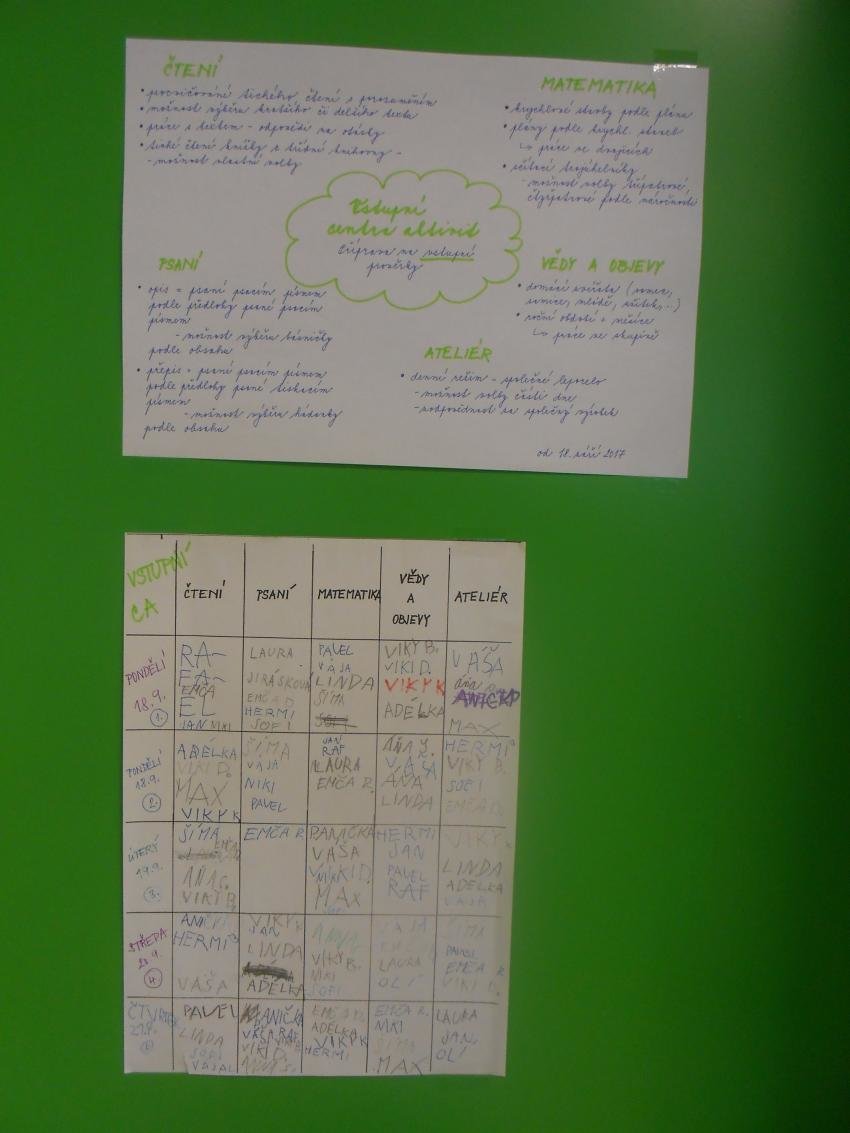 ČTENÍ
• procvičování tichého čtení s porozuměním
• možnost výběru kratšího či delšího textu
• práce s textem - odpovědi na otázky
• tiché čtení knížky z třídní knihovny -
- možnost vlastní volby
MATEMATIKA
• krychlové stavby podle plánu
• plány podle krychl. staveb
↳ práce ve dvojicích
• sčítací trojúhelníky
- možnost volby třípatrové,
čtyřpatrové podle náročnosti
Vstupní
centra aktivit
Příprava na vstupní
prověrky
PSANÍ
• opis = psaní psacím písmem
podle předlohy psané psacím
písmem
- možnost výběru básničky
podle obsahu
• přepis = psaní psacím písmem
podle předlohy psané tiskacím
písmem
- možnost výběru hádanky
podle obsahu
VĚDY A OBJEVY
• domácí zvířata (samec,
samice, mládě, užitek,...)
• roční období + měsíce
↳ práce ve skupině
ATELIÉR
• denní režim - společné leporelo
- možnost volby části dne
- zodpovědnost za společný výrobek
od 18. září 2017
VSTUPNÍ
CA
ČTENÍ
PSANÍ
MATEMATIKA
VĚDY
A
OBJEVY
ATELIÉR
PONDĚLÍ
18.9.
1.
RA-
FA-
EMČA
EL
JAN NIKI
LAURA
JIRÁSKOVÁ
EMČA D.
HERMI
SOFI
PAVEL
VÁJA
LINDA
ŠÍMA
VIKY B.
VIKI D.
VIKY K
ADÉLKA
VÁŠA
ANIČKA
MAX
PONDĚLÍ
18.9.
2.
ADÉLKA
VIKI D.
MAX
VIKY K
ŠÍMA
VÁJA
NIKI
PAVEL
JAN
RAF
LAURA
EMČA R.
VÁŠA
ÁŇA
LINDA
HERMI
VIKY B.
SOFI
EMČA D.
ÚTERÝ
19.9.
3.
ŠÍMA
EMČA
VIKI B.
EMČA R.
PANIČKA
VÁŠA
VIKI D.
NIKI
MAX
HERMI
JAN
PAVEL
RAF
VIKY K
LINDA
ADÉLKA
VÁJA
STŘEDA
20.9.
4.
HERMI
VÁŠA
VIKY K
JAN
LINDA
ADÉLKA
VIKY B.
NIKI
SOFI
VÁJA
LAURA
OLÍ
ŠÍMA
PAVEL
EMČA R
VIKI D.
ČTVRTEK
21.9.
PAVEL
LINDA
SOFI
ANIČKA
VÁŠA RAF
VIKI D.
EMČA D.
ADÉLKA
VIKY K
HERMI
EMČA R.
NIKI
ŠÍMA
MAX
LAURA
JAN
OLÍ